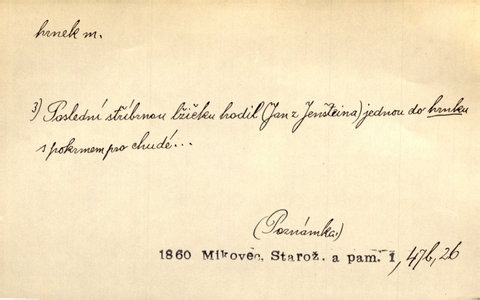 hrnek m.
3) Poslední stříbrnou lžičku hodil (Jan z Jenšteina) jednou do hrnku
s pokrmem pro chudé...
(Poznámka.)
1860 Mikovec, Starož. a pam. 1, 47b, 26